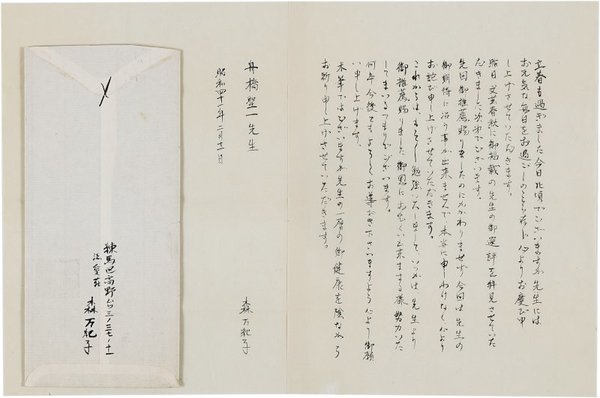 立春も過ぎました今日此頃でございますが先生には
お元気な毎日をお過ごしのことゝ存じ心よりお慶び申
し上げさせていただきます。
昨日文芸春秋に御掲載の先生の御選評を拝見させていた
だきました次第でございます。
先回御推薦賜りましたのにかかわりませず、今回は先生の
御期待に沿う事が出来ませんで本当に申しわけなく心より
お詫び申し上げさせていただきます。
これからはもう少し勉強いたしましていつかは先生より
御推薦賜りました御恩におむくい出来ます様努力いた
してまいるつもりでございます。
何卒今後ともよろしくお導き下さいますよう心より御願
い申し上げます。
末筆ではございますが先生の一層の御健康を陰ながら
お祈り申し上げさせていただきます。
昭和四十一年二月十一日
森万紀子
舟橋聖一先生
練馬区高野台三ノ三七ノ十一
荘
森万紀子